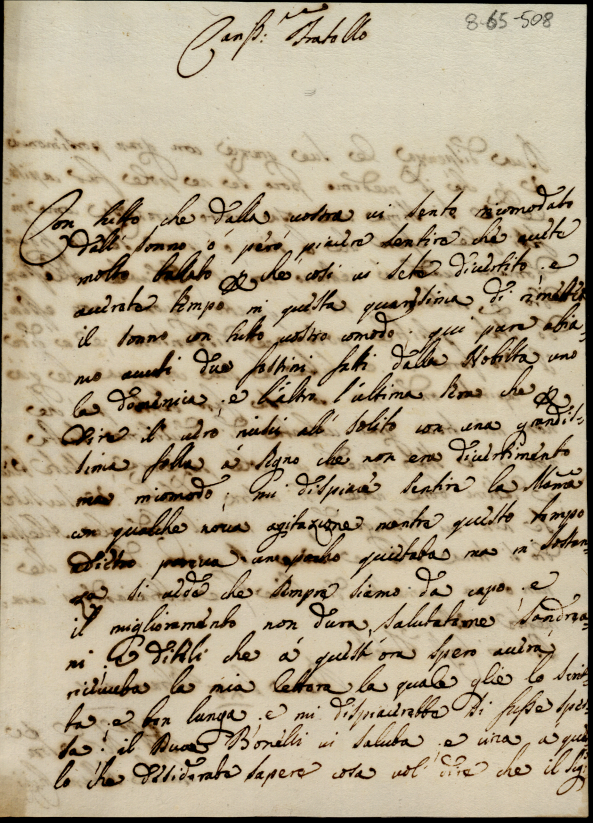 8-65-508
Cariss:mo Fratello
Con tutto che dalla vostra vi sento incomodato
dall sonno ó peró piacere sentire che avete
molto ballato e che cosi vi sete divertito e
averete tempo in questa quaresima di rimettere
il sonno con tutto vostro comodo; qui pure abia-
mo avuti due festini fatti dalla Nobilta uno
la domenica, e l'altro l'ultima sera che per
dire il vero riusci all solito con una grandis-
sima folla á segno che non era divertimento
ma incomodo; mi dispiace sentire la Mama
con qualche nova agitazione mentre questo tempo
adietro pareva un pocho quietata ma in sostan-
za si vede che sempre siamo da capo e
il miglioramento non dura, salutateme Sandrea-
ni e diteli che á quest'ora spero averá
riceuta la mia lettera la quale glie lo scrit-
ta e ben lunga e mi dispiacerebbe si fusse sper-
sa: il Bonelli vi saluta e circa a que-
lo che desiderate sapere cosa vol dire che il Sig: